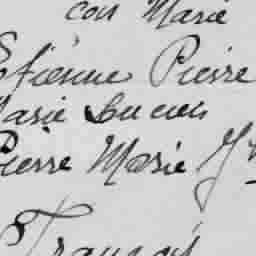 cois Marie
Etienne Pierre
Marie Lucien
Pierre Marie
François